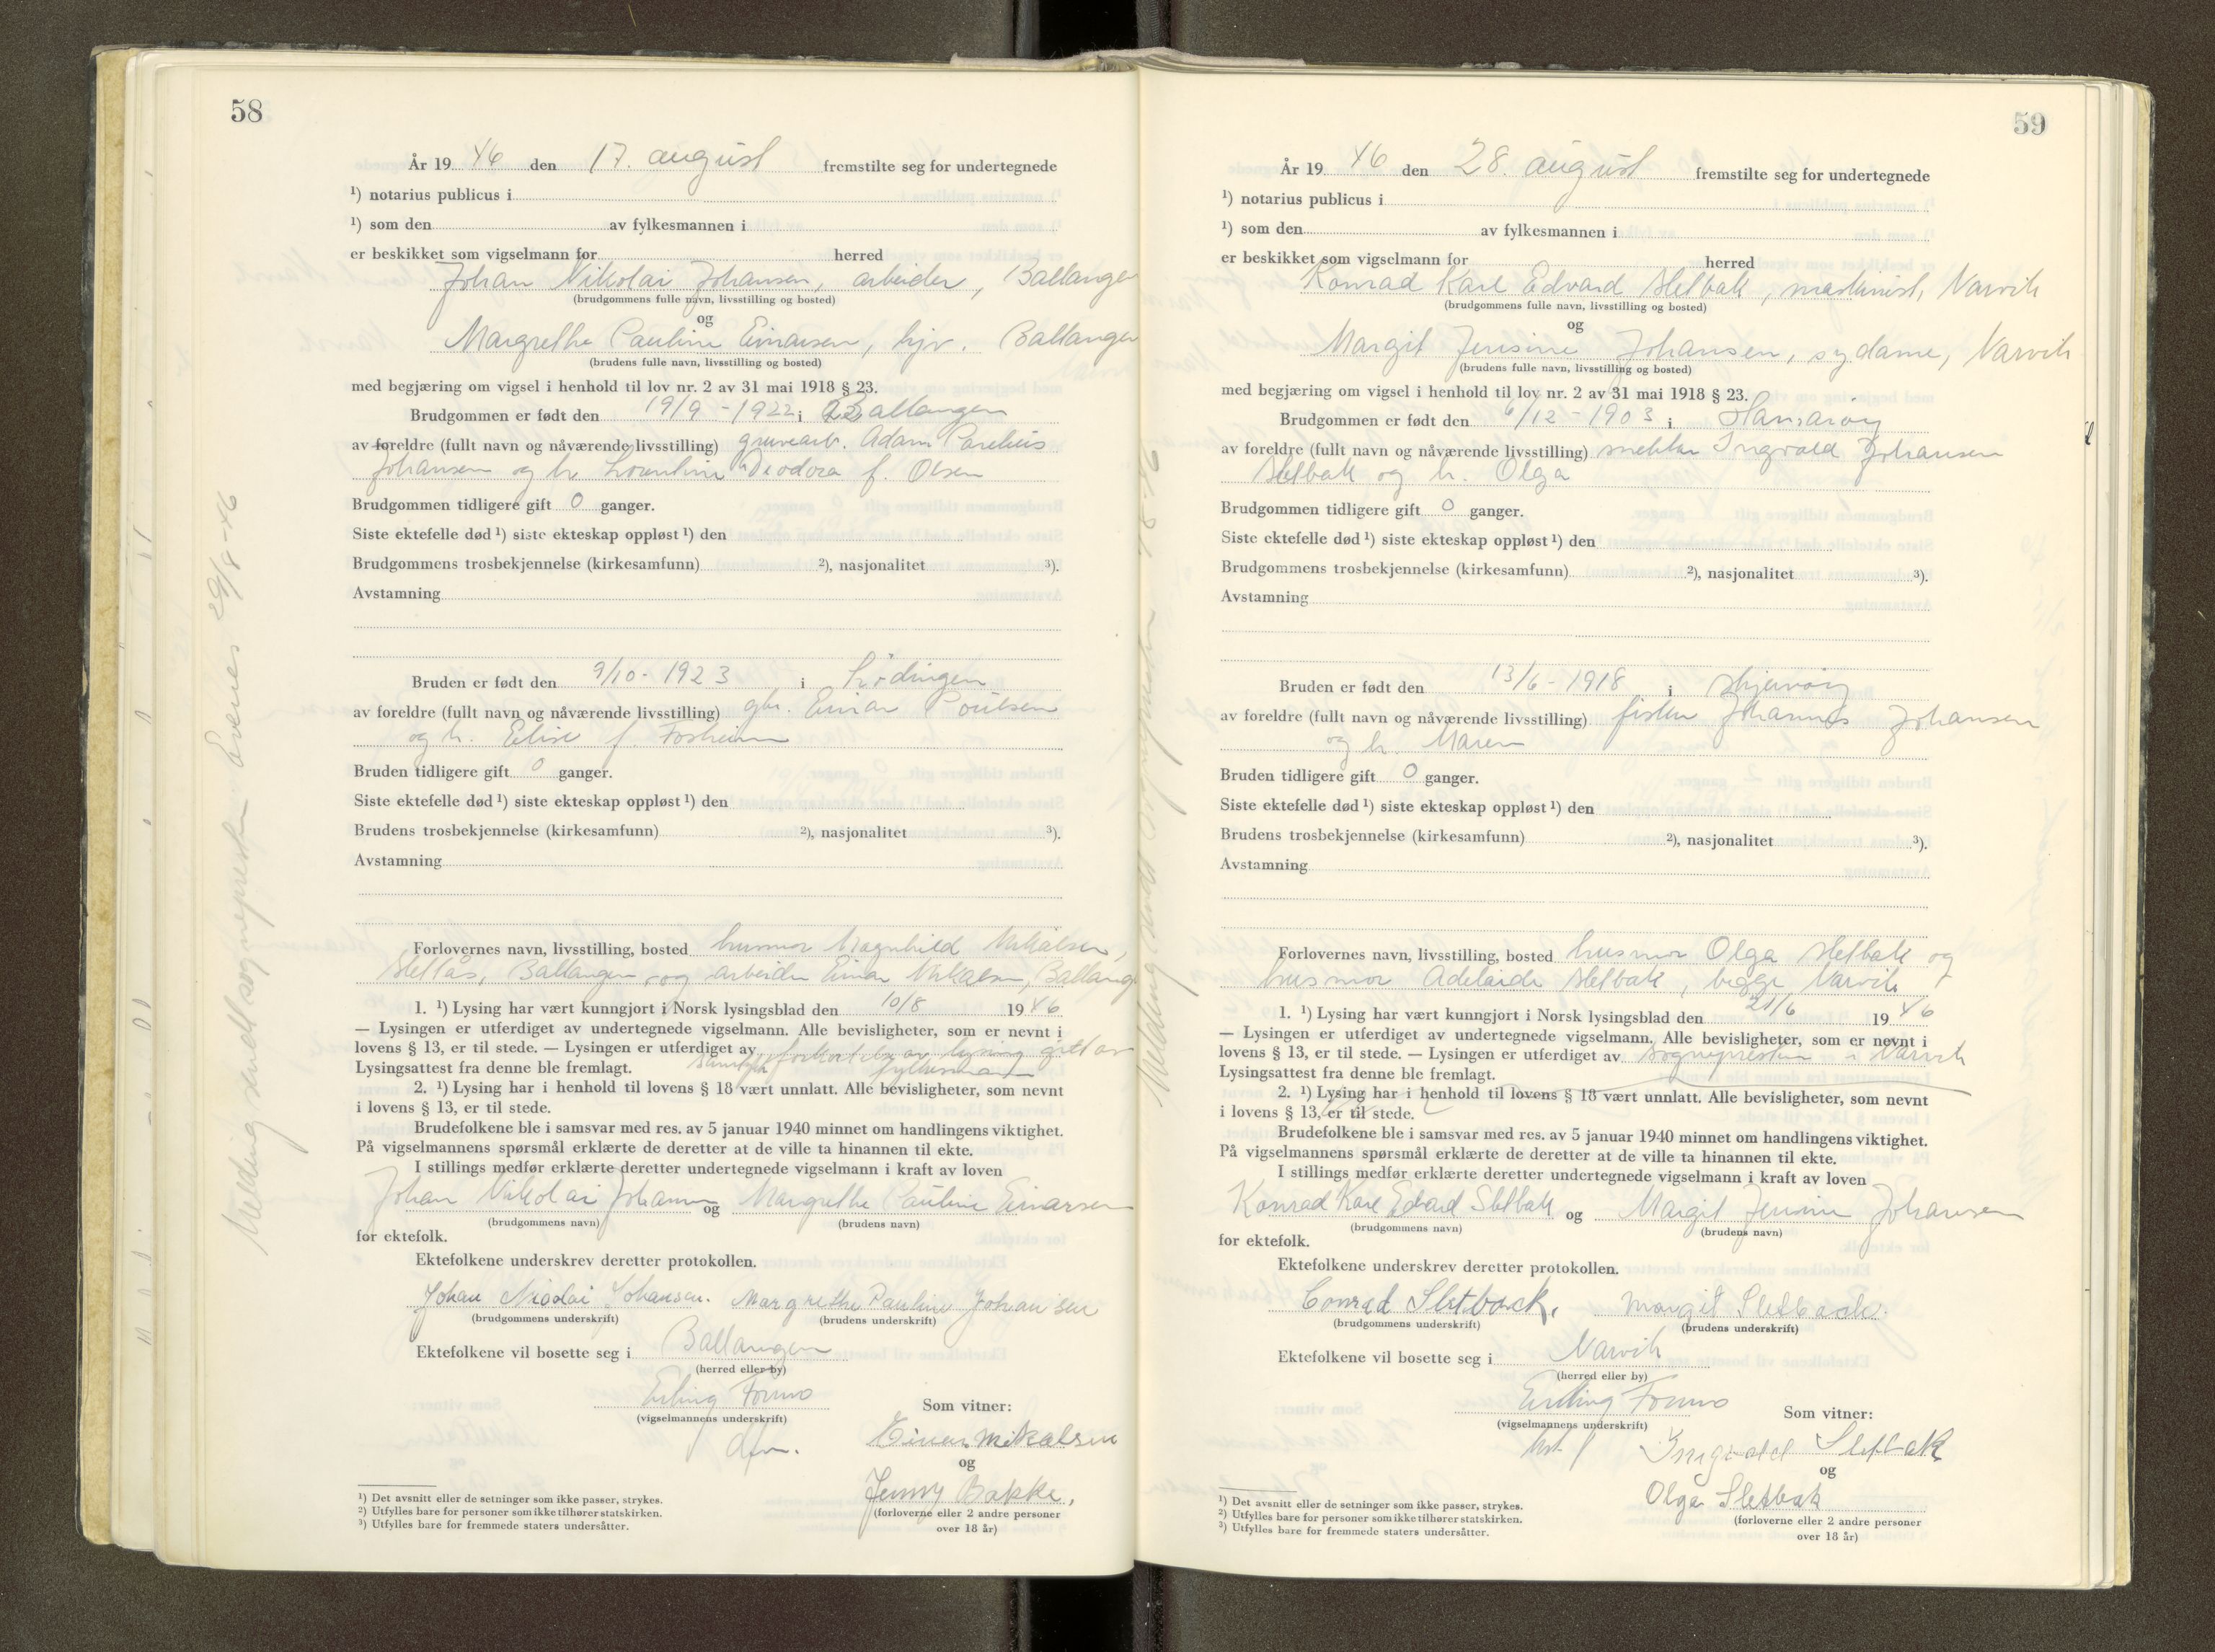 58
År 19 46 den 17. august fremstilte seg for undertegnede
¹) notarius publicus i
¹) som den av fylkesmannen i
er beskikket som vigselmann for herred
Johan Nikolai Johansen, arbeider, Ballangen
(brudgommens fulle navn, livsstilling og bosted)
og
Margrethe Pauline Einarsen, hjv. Ballangen
(brudens fulle navn, livsstilling og bosted)
med begjæring om vigsel i henhold til lov nr. 2 av 31 mai 1918 § 23.
Brudgommen er født den 19/9 - 1922 i Ballangen
av foreldre (fullt navn og nåværende livsstilling) gruvearb. Adam Parelius
Johansen og h. Lorentine Deodora f. Olsen
Brudgommen tidligere gift 0 ganger.
Siste ektefelle død ¹) siste ekteskap oppløst ¹) den
Brudgommens trosbekjennelse (kirkesamfunn) ²), nasjonalitet ³).
Avstamning
Bruden er født den 9/10 - 1923 i Lødingen
av foreldre (fullt navn og nåværende livsstilling) gbr. Einar Poulsen
og h. Elise f. Fosheim
Bruden tidligere gift 0 ganger.
Siste ektefelle død ¹) siste ekteskap oppløst ¹) den
Brudens trosbekjennelse (kirkesamfunn) ²), nasjonalitet ³).
Avstamning
Forlovernes navn, livsstilling, bosted husmor Magnhild Mikalsen,
Slettås, Ballangen og arbeider Einar Mikalsen, Ballang
1. ¹) Lysing har vært kunngjort i Norsk lysingsblad den 10/8 19 46
— Lysingen er utferdiget av undertegnede vigselmann. Alle bevisligheter, som er nevnt i
lovens § 13, er til stede. — Lysingen er utferdiget av forkortelse av lysing gitt av
Lysingsattest fra denne ble fremlagt. fylkesmann
2. ¹) Lysing har i henhold til lovens § 18 vært unnlatt. Alle bevisligheter, som nevnt
i lovens § 13, er til stede.
Brudefolkene ble i samsvar med res. av 5 januar 1940 minnet om handlingens viktighet.
På vigselmannens spørsmål erklærte de deretter at de ville ta hinannen til ekte.
I stillings medfør erklærte deretter undertegnede vigselmann i kraft av loven
Johan Nikolai Johansen og Margrethe Pauline Einarsen
(brudgommens navn) (brudens navn)
for ektefolk.
Ektefolkene underskrev deretter protokollen.
Johan Nicolai Johansen. Margrethe Pauline Johansen
(brudgommens underskrift) (brudens underskrift)
Ektefolkene vil bosette seg i Ballangen
(herred eller by)
Erling Formo
(vigselmannens underskrift)
dfm.
Som vitner:
Einar Mikalsen
og
Jenny Bakke,
(forloverne eller 2 andre personer
over 18 år)
¹) Det avsnitt eller de setninger som ikke passer, strykes.
²) Utfylles bare for personer som ikke tilhører statskirken.
³) Utfylles bare for fremmede staters undersåtter.
Melding sendt sognepresten Evenes 29/8-46
59
År 19 46 den 28. august fremstilte seg for undertegnede
¹) notarius publicus i
¹) som den av fylkesmannen i
er beskikket som vigselmann for herred
Konrad Karl Edvard Sletbak, maskinist, Narvik
(brudgommens fulle navn, livsstilling og bosted)
og
Margit Jensine Johansen, sydame, Narvik
(brudens fulle navn, livsstilling og bosted)
med begjæring om vigsel i henhold til lov nr. 2 av 31 mai 1918 § 23.
Brudgommen er født den 6/12 - 1903 i Hamarøy
av foreldre (fullt navn og nåværende livsstilling) snekker Ingvald Johansen
Sletbak og h. Olga
Brudgommen tidligere gift 0 ganger.
Siste ektefelle død ¹) siste ekteskap oppløst ¹) den
Brudgommens trosbekjennelse (kirkesamfunn) ²), nasjonalitet ³).
Avstamning
Bruden er født den 13/6 - 1918 i Skjervøy
av foreldre (fullt navn og nåværende livsstilling) fisker Johannes Johansen
og h. Maren
Bruden tidligere gift 0 ganger.
Siste ektefelle død ¹) siste ekteskap oppløst ¹) den
Brudens trosbekjennelse (kirkesamfunn) ²), nasjonalitet ³).
Avstamning
Forlovernes navn, livsstilling, bosted husmor Olga Sletbak og
husmor Adelaide Sletbak, begge Narvik
1. ¹) Lysing har vært kunngjort i Norsk lysingsblad den 21/6 19 46
— Lysingen er utferdiget av undertegnede vigselmann. Alle bevisligheter, som er nevnt i
lovens § 13, er til stede. — Lysingen er utferdiget av sognepresten i Narvik
Lysingsattest fra denne ble fremlagt.
2. ¹) Lysing har i henhold til lovens § 18 vært unnlatt. Alle bevisligheter, som nevnt
i lovens § 13, er til stede.
Brudefolkene ble i samsvar med res. av 5 januar 1940 minnet om handlingens viktighet.
På vigselmannens spørsmål erklærte de deretter at de ville ta hinannen til ekte.
I stillings medfør erklærte deretter undertegnede vigselmann i kraft av loven
Konrad Karl Edvard Sletbak og Margit Jensine Johansen
(brudgommens navn) (brudens navn)
for ektefolk.
Ektefolkene underskrev deretter protokollen.
Conrad Sletback. Margit Sletback.
(brudgommens underskrift) (brudens underskrift)
Ektefolkene vil bosette seg i Narvik
(herred eller by)
Erling Formo
(vigselmannens underskrift)
Som vitner:
Ingvald Sletbak
og
Olga Sletbak
(forloverne eller 2 andre personer
over 18 år)
¹) Det avsnitt eller de setninger som ikke passer, strykes.
²) Utfylles bare for personer som ikke tilhører statskirken.
³) Utfylles bare for fremmede staters undersåtter.
Melding sendt sognepresten